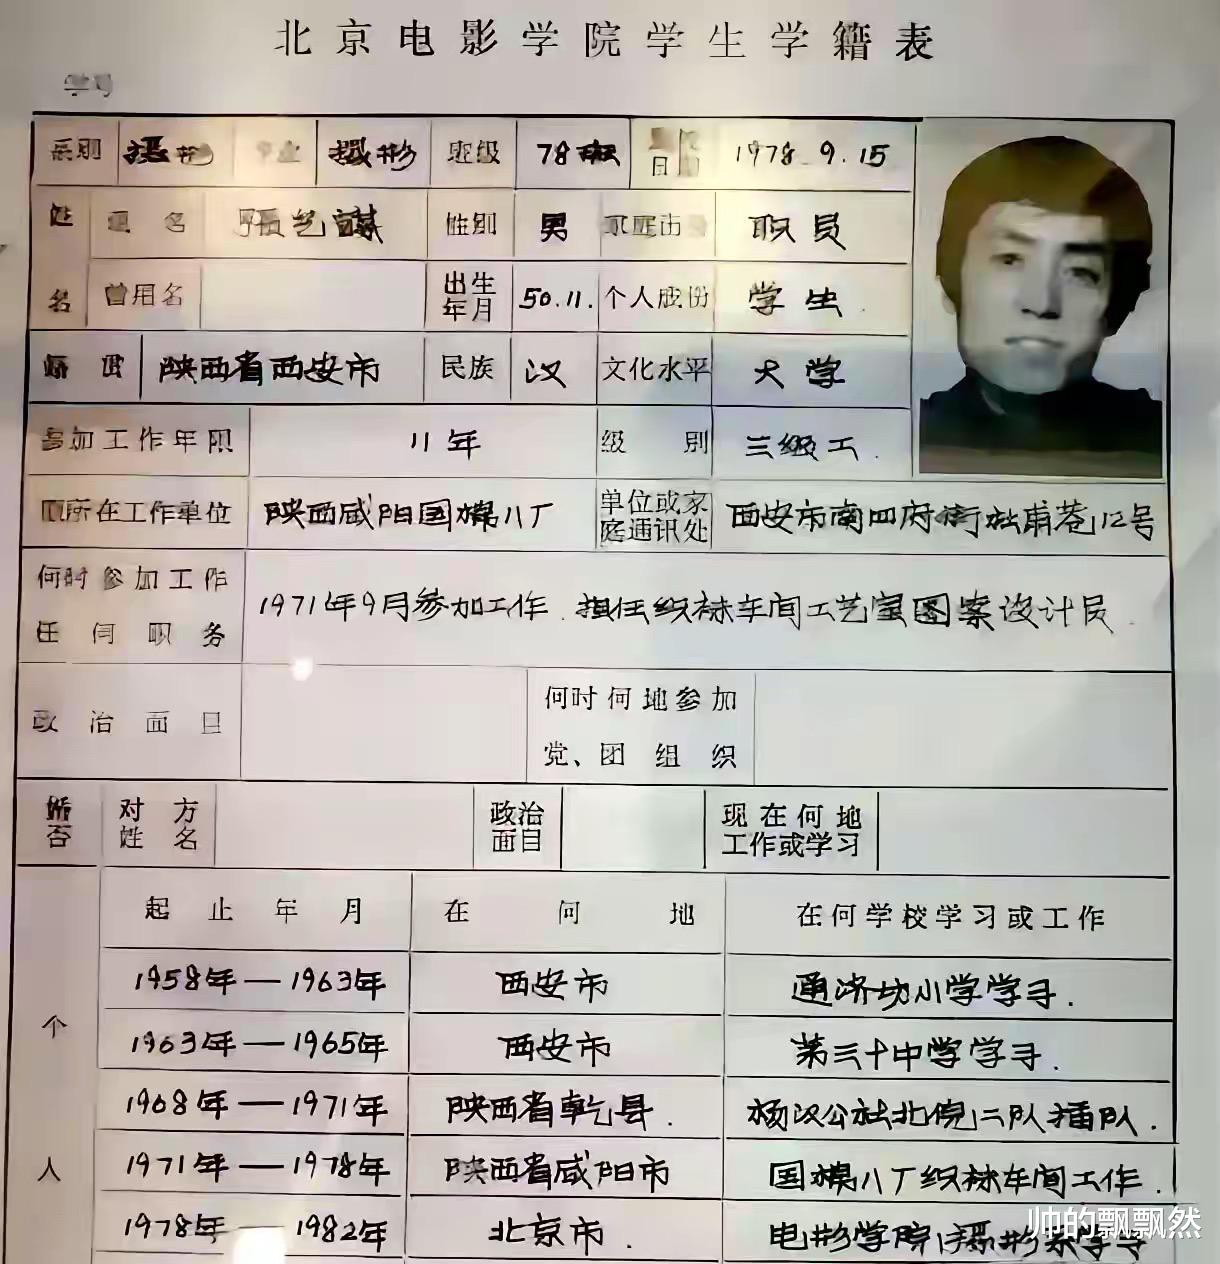 北京电影学院学生学籍表
学号
系别 摄影 专业 摄影 班级 78班 日期 1978.9.15
姓名 现名 张艺謀 性别 男 家庭出身 职员
曾用名 出生年月 50.11. 个人成份 学生
籍贯 陕西省西安市 民族 汉 文化水平 大学
参加工作年限 11年 级别 三级工.
原所在工作单位 陕西咸阳国棉八厂 单位或家庭通讯处 西安市南四府街社甫巷12号
何时参加工作任何职务 1971年9月参加工作.担任织袜车间工艺室图案设计员.
政治面目 何时何地参加党、团组织
婚否 对方姓名 政治面目 现在何地工作或学习
个人
起止年月 在何地 在何学校学习或工作
1958年—1963年 西安市 通济坊小学学习.
1963年—1965年 西安市 第三十中学学习.
1968年—1971年 陕西省乾县. 杨汉公社北倪二队插队.
1971年—1978年 陕西省咸阳市 国棉八厂织袜车间工作.
1978年—1982年 北京市. 电影学院摄影系学习
帅的飘飘然